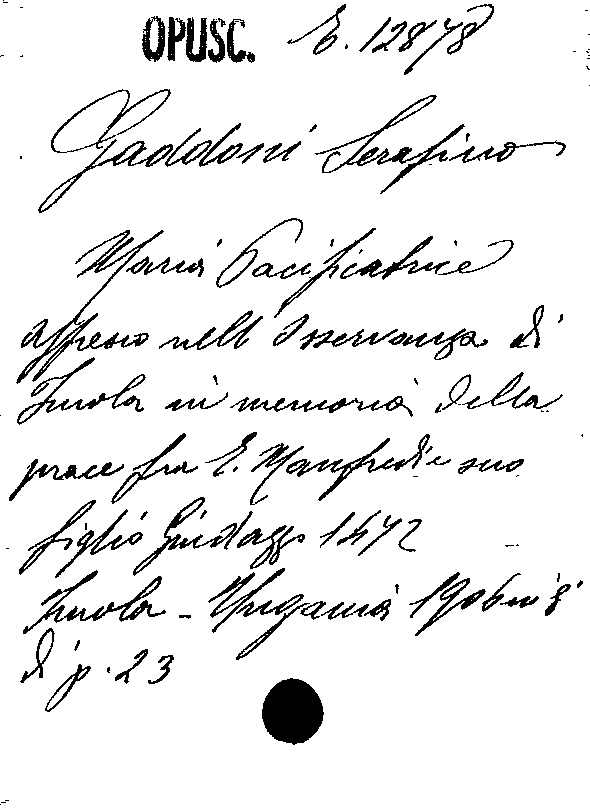 OPUSC. E. 12878
Gaddoni Serafino
Maria Pacificatrice
affresco nell'Osservanza di
Imola in memoria della
pace fra E. Manfredi e suo
figlio Guidazzo 1472
Imola - Ungania 1906 in 8°
di p. 23